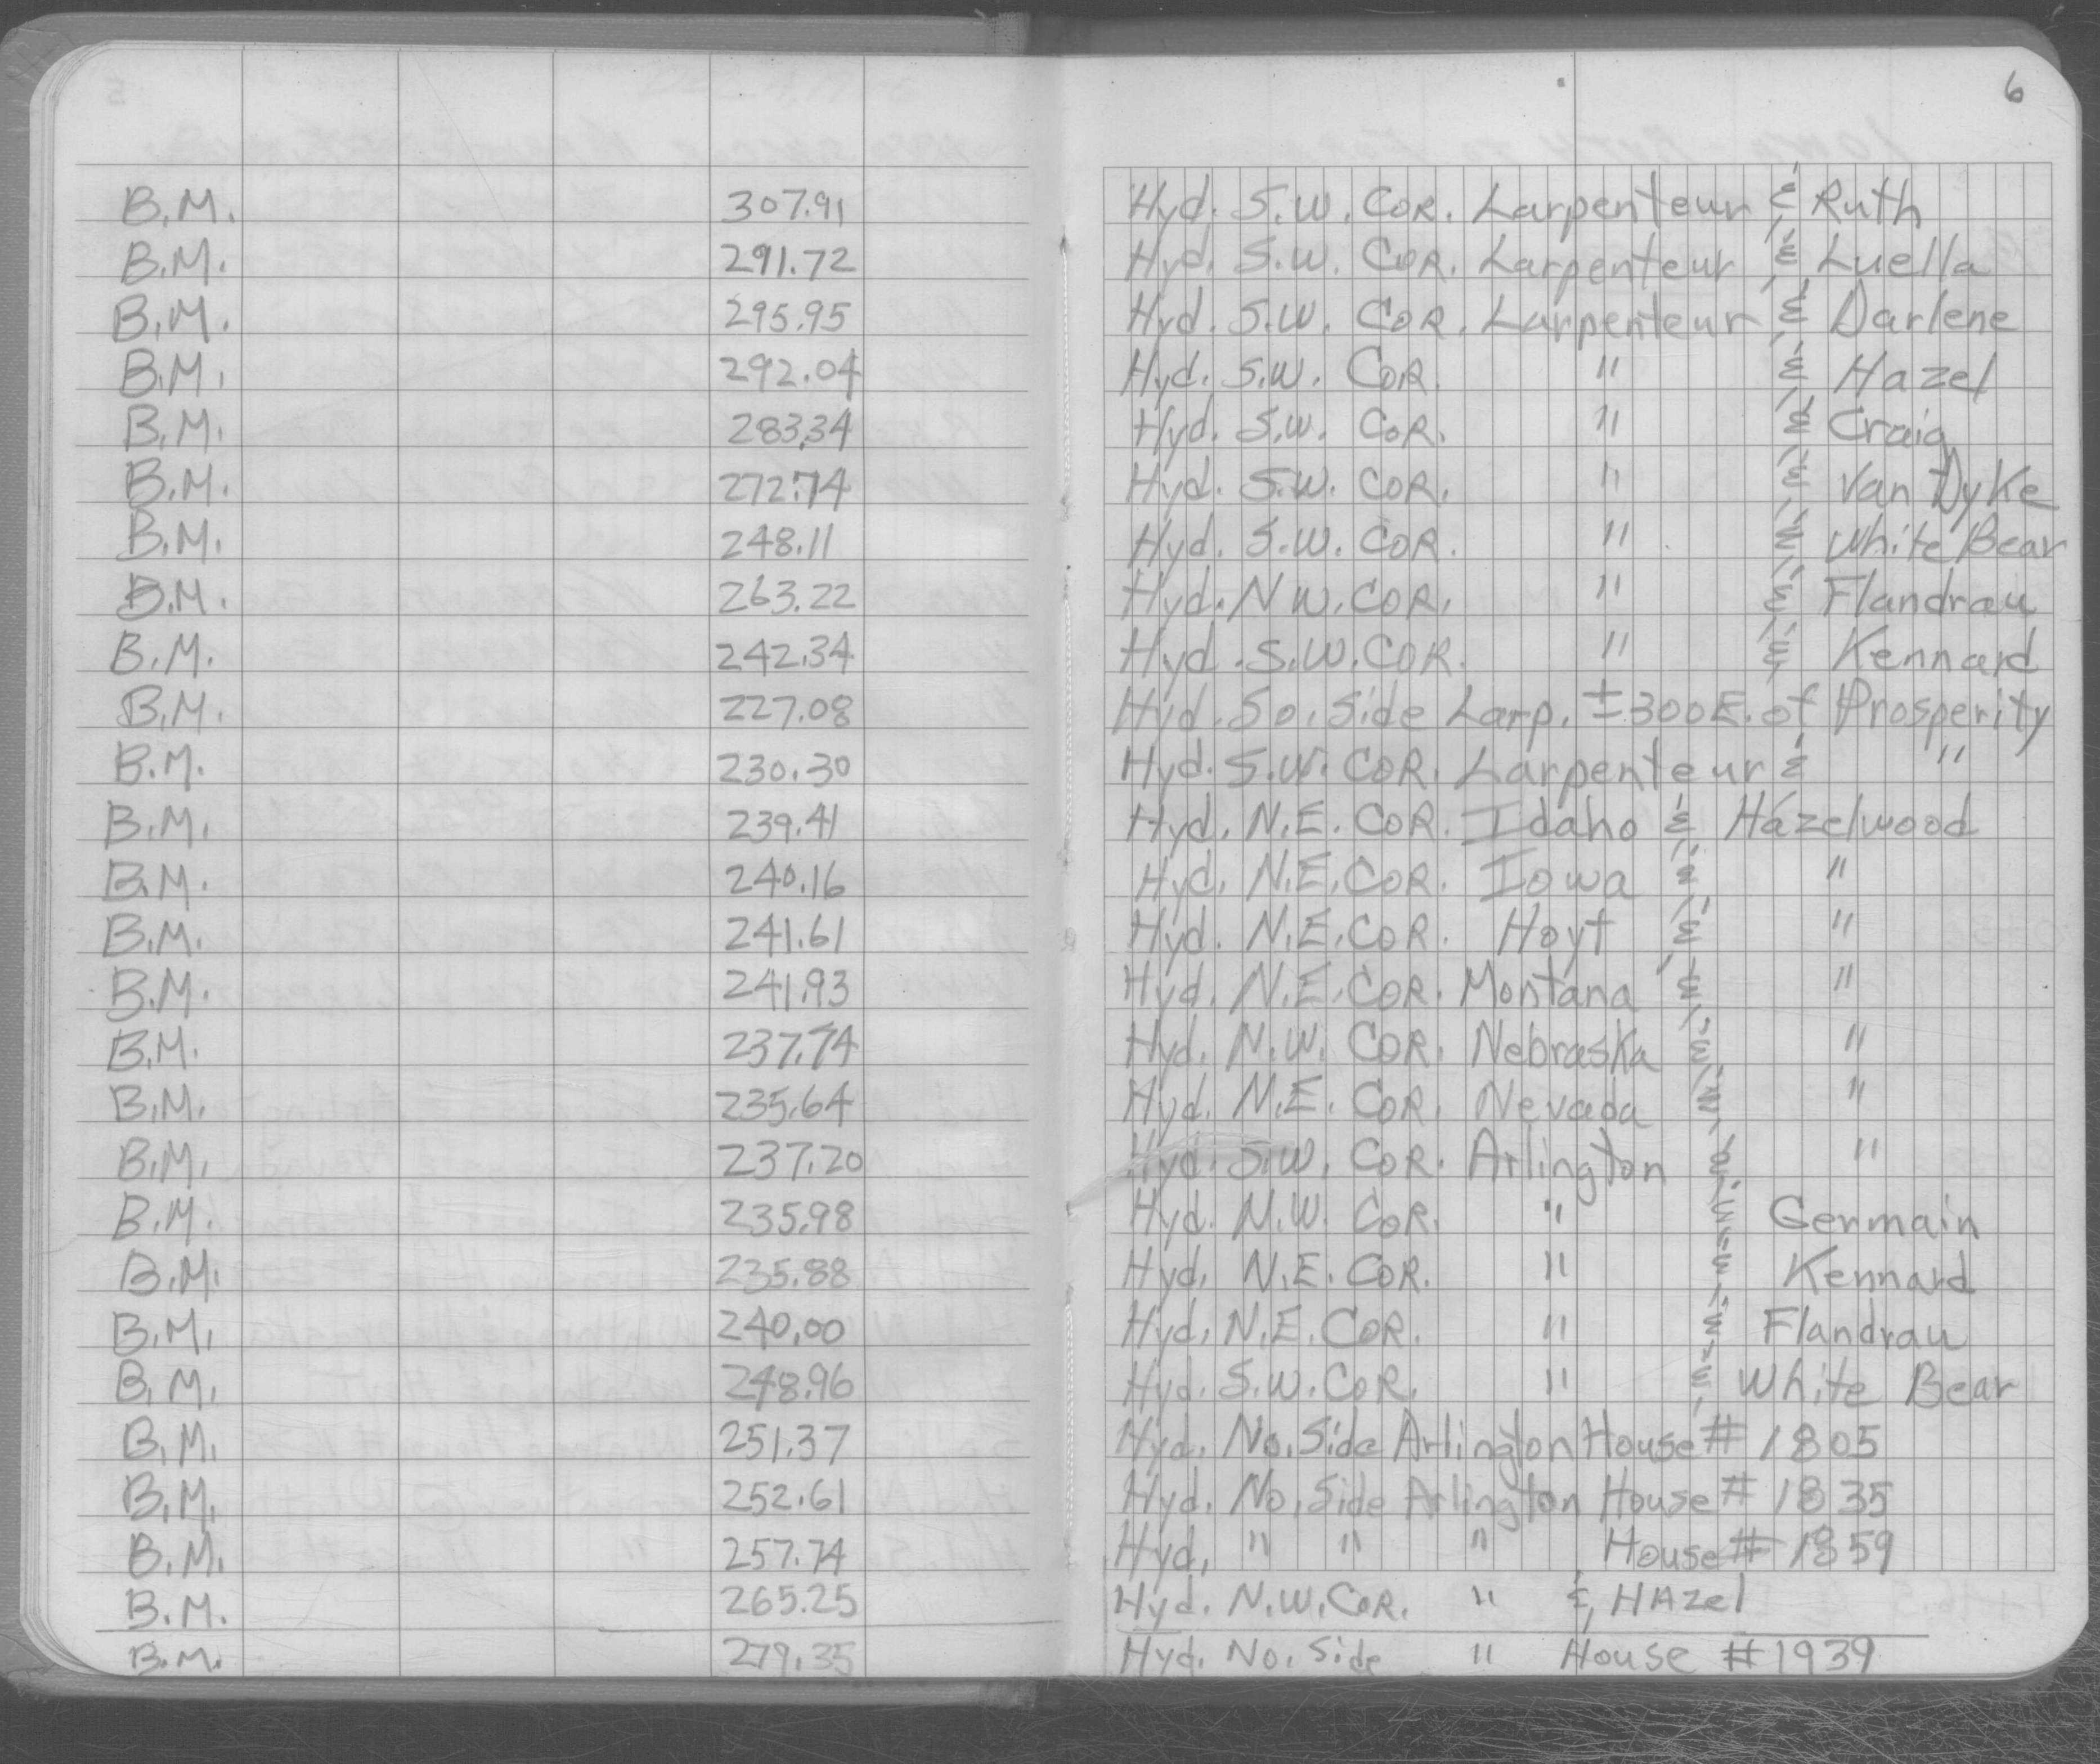 6
B.M. 307.91 Hyd. S.W. COR. Larpenteur & Ruth
B.M. 291.72 Hyd. S.W. COR. Larpenteur & Luella
B.M. 295.95 Hyd. S.W. COR. Larpenteur & Darlene
B.M. 292.04 Hyd. S.W. COR. " & Hazel
B.M. 283.34 Hyd. S.W. COR. " & Craig
B.M. 272.74 Hyd. S.W. COR. " & Van Dyke
B.M. 248.11 Hyd. S.W. COR. " & White Bear
B.M. 263.22 Hyd. N W. COR. " & Flandrau
B.M. 242.34 Hyd. S.W. COR. " & Kennard
B.M. 227.08 Hyd. So. Side Larp. ±300 E. of Prosperity
B.M. 230.30 Hyd. S.W. COR. Larpenteur & "
B.M. 239.41 Hyd. N.E. COR. Idaho & Hazelwood
B.M. 240.16 Hyd. N.E. COR. Iowa & "
B.M. 241.61 Hyd. N.E. COR. Hoyt & "
B.M. 241.93 Hyd. N.E. COR. Montana & "
B.M. 237.74 Hyd. N.W. COR. Nebraska & "
B.M. 235.64 Hyd. N.E. COR. Nevada & "
B.M. 237.20 Hyd. S.W. COR. Arlington & "
B.M. 235.98 Hyd. N.W. COR. " & Germain
B.M. 235.88 Hyd. N.E. COR. " & Kennard
B.M. 240.00 Hyd. N.E. COR. " & Flandrau
B.M. 248.96 Hyd. S.W. COR. " & White Bear
B.M. 251.37 Hyd. No. Side Arlington House # 1805
B.M. 252.61 Hyd. No. Side Arlington House # 1835
B.M. 257.74 Hyd. " " " House # 1859
B.M. 265.25 Hyd. N.W. COR. " & HAzel
B.M. 279.35 Hyd. No. Side " House #1939